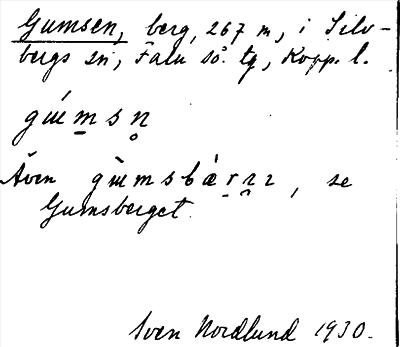 Gumsen, berg, 267 m, i Silv-
bergs sn, Falu sö. tg, Kopp. l.
gɯ́m̲sn̥
Även gɯ̀msbàrɪɪ, se
Gumsberget.
Sven Nordlund 1930.